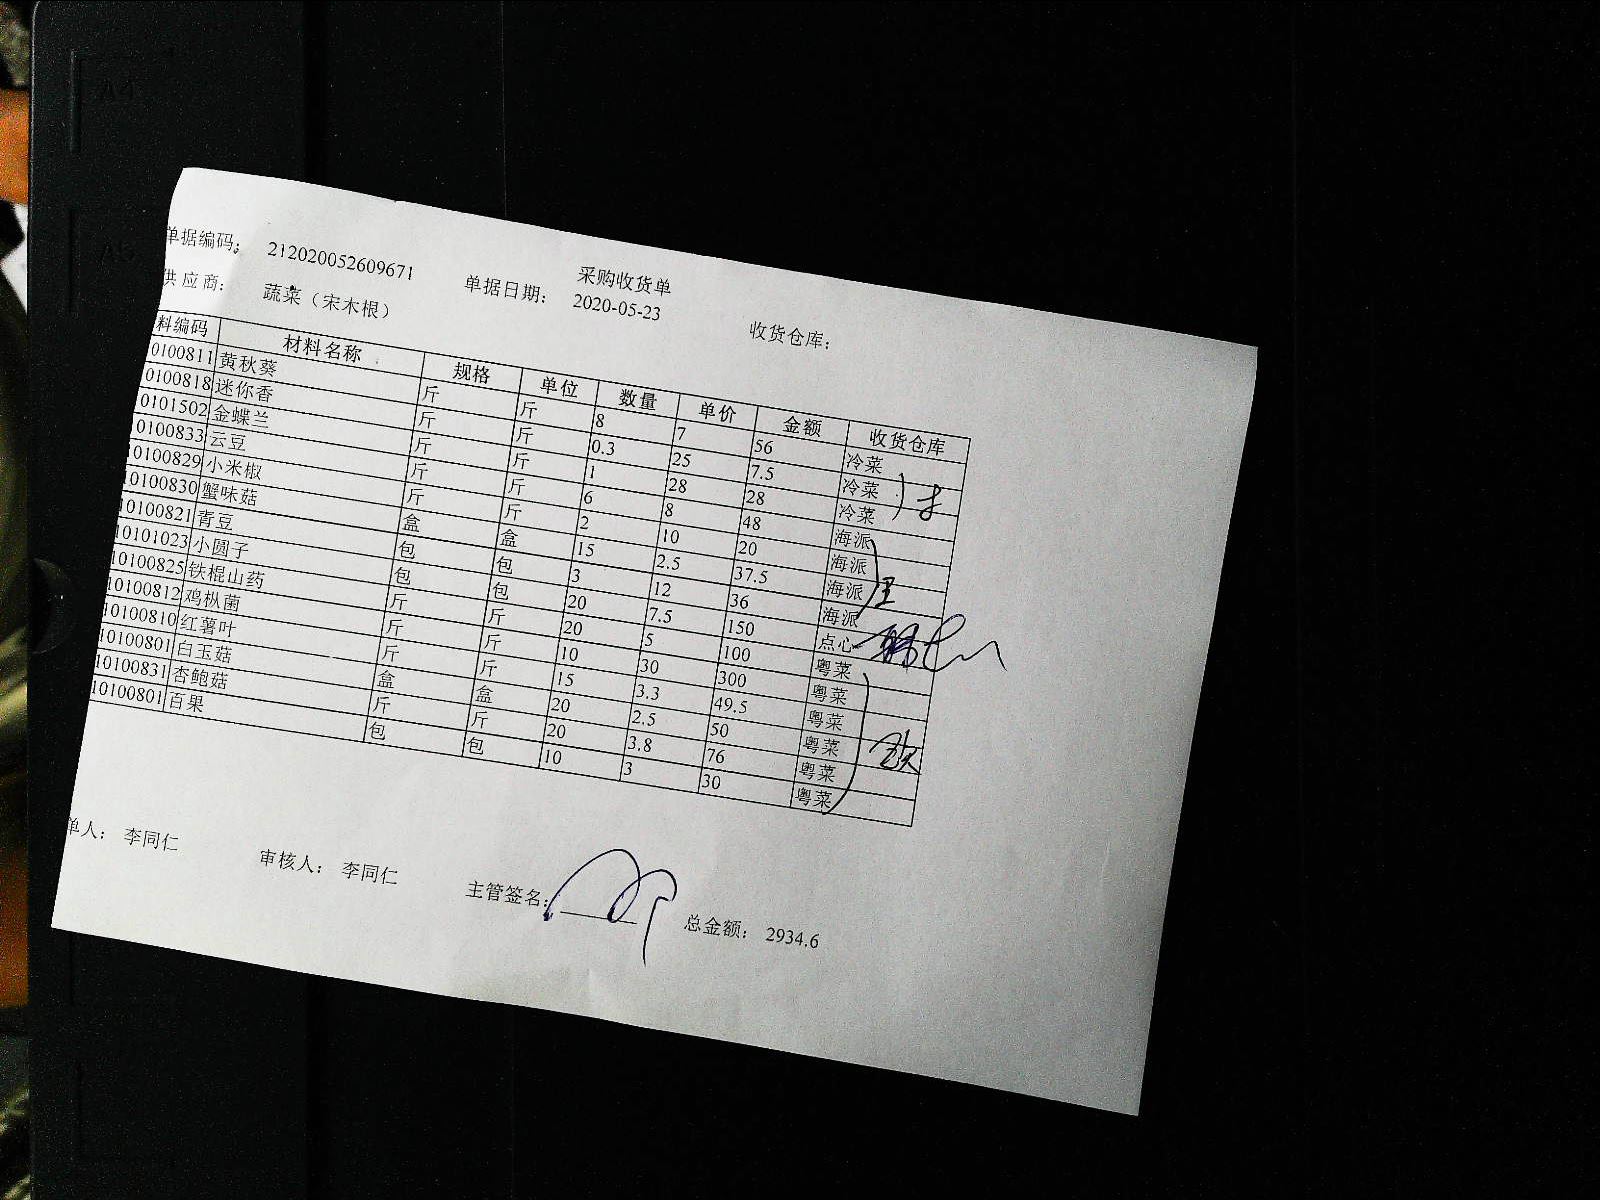 采购收货单
单据编码: 212020052609671 单据日期: 2020-05-23 收货仓库:
供应商: 蔬菜（宋木根）
料编码 材料名称 规格 单位 数量 单价 金额 收货仓库
0100811 黄秋葵 斤 斤 8 7 56 冷菜
0100818 迷你香 斤 斤 0.3 25 7.5 冷菜
0101502 金蝶兰 斤 斤 1 28 28 冷菜
0100833 云豆 斤 斤 6 8 48 海派
0100829 小米椒 斤 斤 2 10 20 海派
10100830 蟹味菇 盒 盒 15 2.5 37.5 海派
10100821 青豆 包 包 3 12 36 海派
10101023 小圆子 包 包 20 7.5 150 点心
10100825 铁棍山药 斤 斤 20 5 100 粤菜
10100812 鸡枞菌 斤 斤 10 30 300 粤菜
10100810 红薯叶 斤 斤 15 3.3 49.5 粤菜
10100801 白玉菇 盒 盒 20 2.5 50 粤菜
10100831 杏鲍菇 斤 斤 20 3.8 76 粤菜
10100801 百果 包 包 10 3 30 粤菜
单人: 李同仁 审核人: 李同仁 主管签名: 总金额: 2934.6